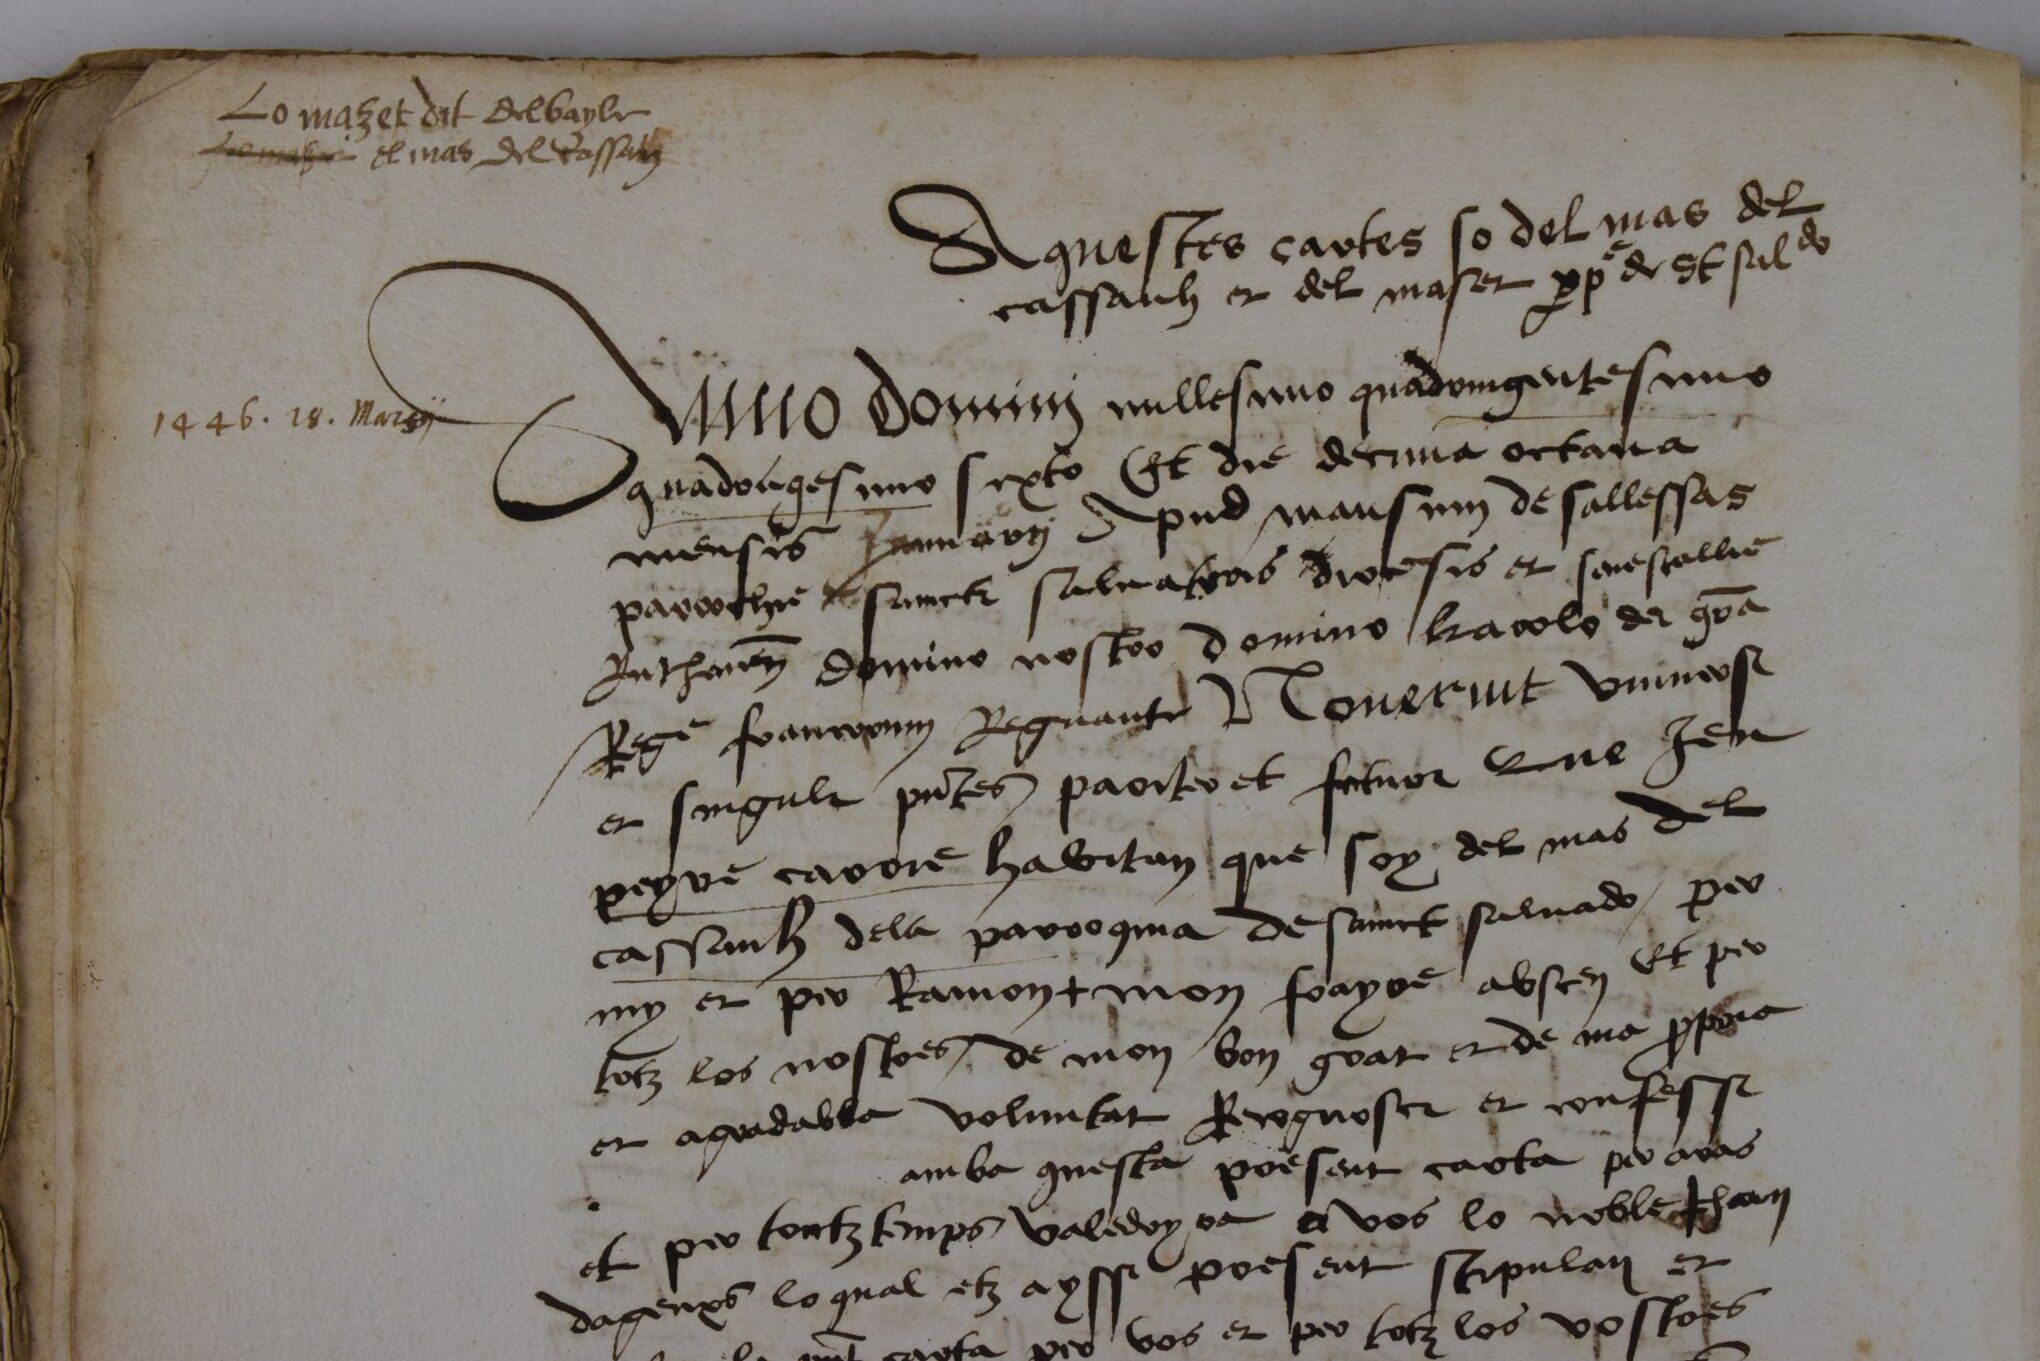 Lo mazet dit delbayle
el mas del Cassanh
Aquestes cartes so del mas del
cassanh et del maset pp^e de st sal^do
1446. 18. Marsij
Anno Domini millesimo quadringentesimo
quadragesimo sexto Et die decima octava
mensis Januarij Apud mansum de sallessas
parrochie sancti salvatoris diocesis et senescallie
Ruthenen̄ domino nostro domino karolo dei grā
Rege francorum Regnante Noverint universi
et singuli pn̄tes pariter et futuri Que Jeu
peyre carrie havitan que soy del mas del
cassanh dela parroquia de sainct salvado per
my et per Ramon + mon frayre absen Et per
totz los nostres de mon bon grat et de ma propria
et agradabla voluntat Recognosce et confesse
amba questa present carta per aras
et per toutz temps valedoyra a vos lo noble Jhan
dagenxs loqual etz ayssi present stipulan et
pn̄t carta per vos et per totz los vostres